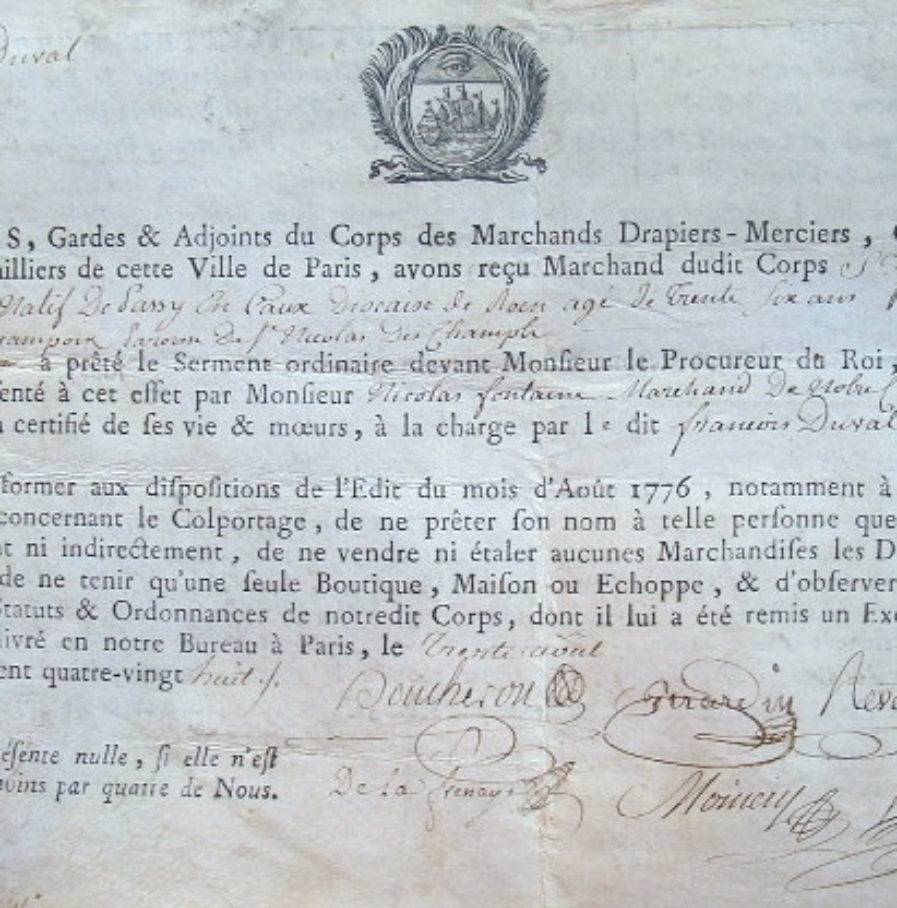 Duval
S, Gardes & Adjoints du Corps des Marchands Drapiers-Merciers,
illiers de cette Ville de Paris, avons reçu Marchand dudit Corps
Natif De en Caux Diocaise de agé de trente six ans
Paroisse De St Nicolas Des Champs
à prêté le Serment ordinaire devant Monſieur le Procureur du Roi,
enté à cet effet par Monſieur Nicolas fontaine Marchand De
certifié de ſes vie & mœurs, à la charge par le dit francois Duval
former aux diſpoſitions de l'Edit du mois d'Août 1776, notamment à
concernant le Colportage, de ne prêter ſon nom à telle perſonne que
t ni indirectement, de ne vendre ni étaler aucunes Marchandiſes les D
de ne tenir qu'une ſeule Boutique, Maiſon ou Echoppe, & d'obſerver
Statuts & Ordonnances de notredit Corps, dont il lui a été remis un Ex
ivré en notre Bureau à Paris, le
ent quatre-vingt huit
Boucheron Girardin
éſente nulle, ſi elle n'eſt
oins par quatre de Nous.
De la frenaye